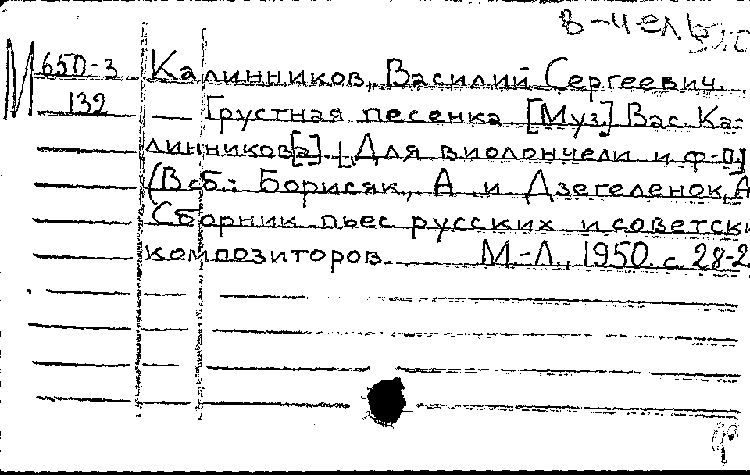 в-чель
М 650-3 Калинников, Василий Сергеевич.
132 Грустная песенка [Муз.] Вас. Ка-
линников[а]. [Для виолончели и ф-п]
(В сб.: Борисяк, А. и Дзегеленок, А
Сборник пьес русских и советски
композиторов. М.-Л., 1950. с. 28-2